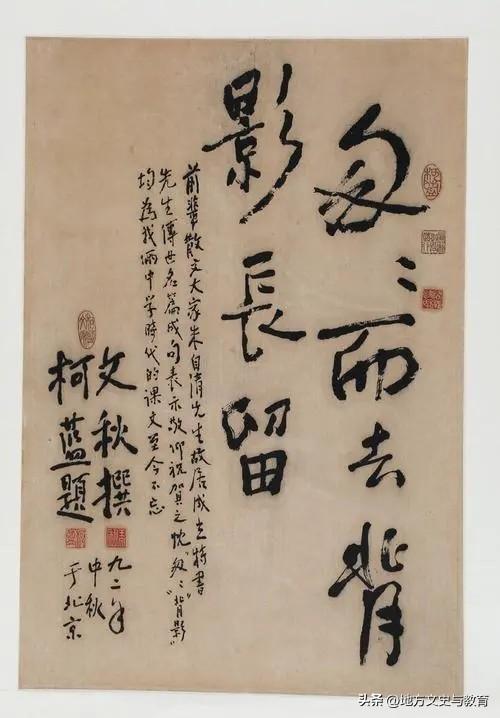 匆〻而去背
影長留
前輩散文大家朱自清先生故居成立特書
先生傳世名篇成句表示敬仰祝賀之忱"匆〻""背影"
均為我倆中学時代的课文至今不忘
文秋撰
柯蓝題
九二年
中秋
于北京
头条 @地方文史与教育